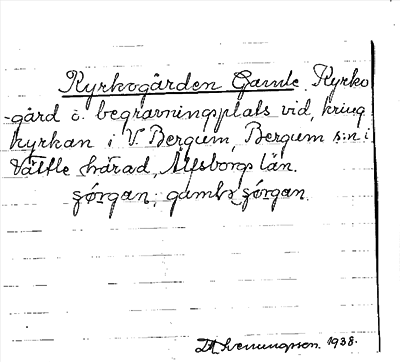 Kyrkogården Gamle. Kyrko
-gård o. begravningsplats vid, kring
kyrkan i V. Bergum, Bergum s:n i
Vättle härad, Älfsborgs län.
gamla
1938.